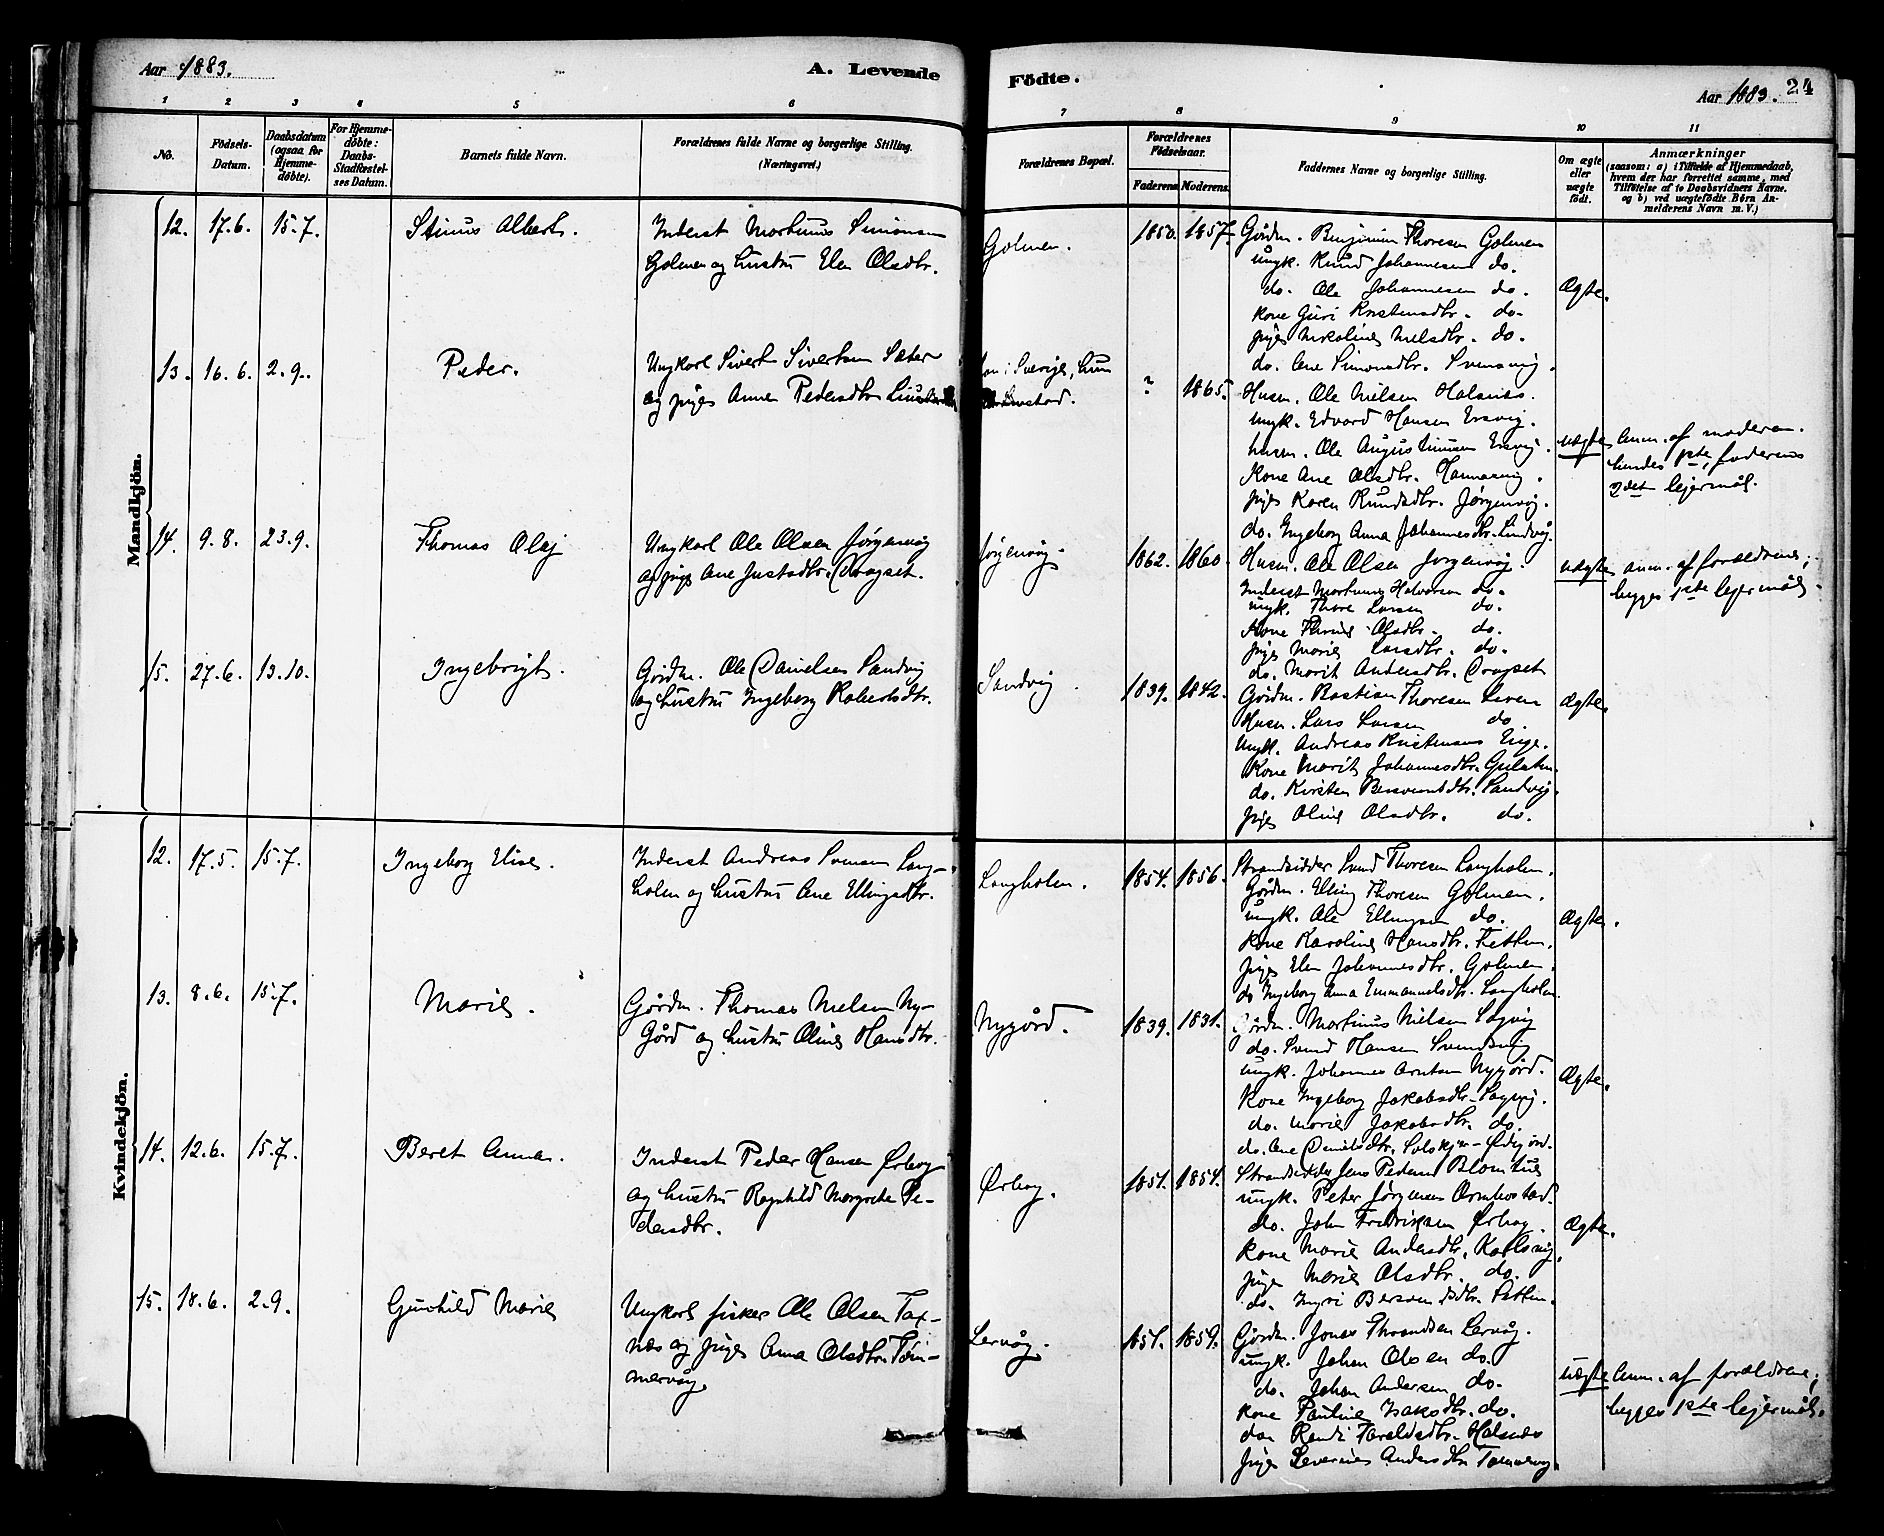 Aar 1883. A. Levende
Födte. Aar 1883. 24
1 2 3 4 5 6
7 8 9 10 11
No.
Födsels-
Datum.
Daabsdatum
(ogsaa for
Hjemme-
döbte).
For Hjemme-
döbte:
Daabs-
Stadfæstel-
ses Datum.
Barnets fulde Navn.
Forældrenes fulde Navne og borgerlige Stilling.
(Næringsvei.)
Forældrenes Bopæl.
Forældrenes
Födselsaar.
Faderens Moderens
Faddernes Navne og borgerlige Stilling.
Om ægte
eller
uægte
födt.
Anmærkninger
(saasom: a) i Tilfælde af Hjemmedaab,
hvem der har forrettet samme, med
Tilföielse af to Daabsvidners Navne.
og b) ved uægtefödte Börn An-
melderens Navn m. V.)
Mandkjön.
12. 17.6. 15.7. Stinus Albert.
Inderst Martinus Simonsen
Golmen og hustru Elen Olsdtr.
Golmen. 1850. 1857.
Gårdm. Benjamin Thoresen Golmen
Ungk. Knud Johannesen do.
do. Ole Johannesen do.
Kone Guri Kristensdtr. do.
Pige Nikoline Nielsdtr. do.
do. Ane Simonsdtr. Svensvig.
Ægte.
13. 16.6. 2.9. Peder.
Ungkarl Sivert Sivertsen Sæter
og pige Anne Pedersdtr.
i Sverige, hun
? 1865.
Husm. Ole Nielsen Halsnes.
Ungk. Edvard Hansen Ersvig.
Husm. Ole Augustinusen Ersvig.
Kone Ane Olsdtr. Hamnesvig.
Pige Karen Knudsdtr. Jørgenvåg.
do. Ingeborg Anna Johannesdtr. Lindvåg.
uægte
Anm. af moderen.
hendes 1ste, faderens
2det lejermål.
14. 9.8. 23.9. Thomas Olaj
Ungkarl Ole Olsen Jørgenvåg
og pige Ane Justsdtr. Dragset.
Jørgenvåg. 1862. 1860.
Husm. Ole Olsen Jørgenvåg.
Inderst Martinus Halvorsen do.
Ungk. Thore Larsen do.
Kone Thrine Olsdtr. do.
Pige Marie Larsdtr. do.
do. Marit Andersdtr. Dragset
uægte
anm. af forældrene;
begges 1ste lejermål.
15. 27.6. 13.10. Ingebrigt.
Gårdm. Ole Danielsen Sandvig
og hustru Ingeborg Robertsdtr.
Sandvig. 1839. 1842.
Gårdm. Bastian Thoresen Leren
Husm. Lars Larsen do.
Ungk. Andreas Kristensen Enge.
Kone Marit Johannesdtr.
do. Kirsten Sandvig.
Pige Oline Olsdtr. do.
Ægte.
Kvindekjön.
12. 17.5. 15.7. Ingeborg Elise.
Inderst Andreas Svensen Lang-
holen og hustru Ane Ellingsdtr.
Langholen. 1854. 1856.
Strandsidder Svend Thoresen Langholen.
Gårdm. Elling Thoresen Golmen.
Ungk. Ole Ellingsen do.
Kone Karoline Hansdtr.
Pige Elen Johannesdtr. Golmen.
do Ingeborg Anna Emmanuelsdtr. Langholen.
Ægte.
13. 8.6. 15.7. Marie.
Gårdm. Thomas Nielsen Ny-
gård og hustru Oline Hansdtr.
Nygård. 1839. 1831.
Gårdm. Martinus Nielsen Sagvig
do. Svend Hansen Svendsvig
Ungk. Johannes Arntsen Nygård.
Kone Ingeborg Jakobsdtr. Sagvig.
do. Marie Jakobsdtr. do.
do. Ane Danielsdtr.
Ægte.
14. 12.6. 15.7. Beret Anna.
Inderst Peder Hansen Ørbog
og hustru Ragnhild Margrete Pe-
dersdtr.
Ørbog. 1851. 1854.
Strandsidder Jens Pedersen Blomhus
Ungk. Peter Jørgensen
do. John Fredriksen Ørbog.
Kone Marie Andersdtr. Karlsvig.
Pige Marie Olsdtr. do.
do. Ingri
Ægte.
15. 18.6. 2.9. Gunhild Marie
Ungkarl fisker Ole Olsen Tax-
næs og pige Anna Olsdtr. Tøm-
mervåg.
Lervåg. 1851. 1859.
Gårdm. Jonas Throndsen Lervåg.
Ungk. Johan Olsen do.
do. Johan Andersen do.
Kone Pauline Isaksdtr. do.
do. Randi Haralddtr. Halsnes
Pige Severine Andersdtr. Tømmervåg.
uægte
Anm. af forældrene;
begges 1ste lejermål.